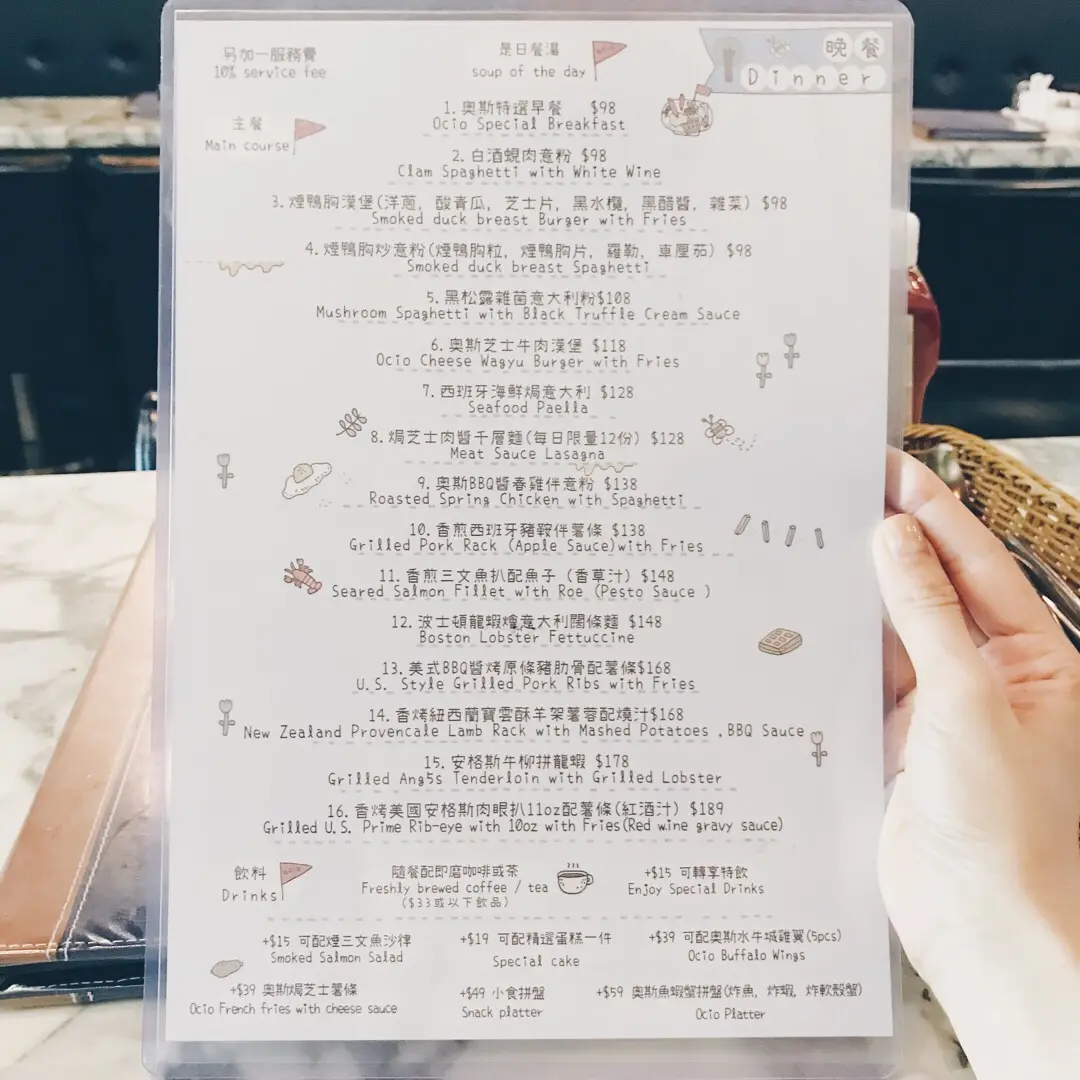 另加一服務費
10% service fee
是日餐湯
soup of the day
晚餐
Dinner
主餐
Main course
1. 奧斯特選早餐 $98
Ocio Special Breakfast
2. 白酒蜆肉意粉 $98
Clam Spaghetti with White Wine
3. 煙鴨胸漢堡(洋蔥, 酸青瓜, 芝士片, 黑水欖, 黑醋醬, 雜菜) $98
Smoked duck breast Burger with Fries
4. 煙鴨胸炒意粉(煙鴨胸粒, 煙鴨胸片, 羅勒, 車厘茄) $98
Smoked duck breast Spaghetti
5. 黑松露雜菌意大利粉$108
Mushroom Spaghetti with Black Truffle Cream Sauce
6. 奧斯芝士牛肉漢堡 $118
Ocio Cheese Wagyu Burger with Fries
7. 西班牙海鮮焗意大利 $128
Seafood Paella
8. 焗芝士肉醬千層麵(每日限量12份) $128
Meat Sauce Lasagna
9. 奧斯BBQ醬春雞伴意粉 $138
Roasted Spring Chicken with Spaghetti
10. 香煎西班牙豬鞍伴薯條 $138
Grilled Pork Rack (Apple Sauce)with Fries
11. 香煎三文魚扒配魚子 (香草汁) $148
Seared Salmon Fillet with Roe (Pesto Sauce )
12. 波士頓龍蝦燴意大利闊條麵 $148
Boston Lobster Fettuccine
13. 美式BBQ醬烤原條豬肋骨配薯條$168
U.S. Style Grilled Pork Ribs with Fries
14. 香烤紐西蘭寶雲酥羊架薯蓉配燒汁$168
New Zealand Provencale Lamb Rack with Mashed Potatoes ,BBQ Sauce
15. 安格斯牛柳拼龍蝦 $178
Grilled Ang5s Tenderloin with Grilled Lobster
16. 香烤美國安格斯肉眼扒11oz配薯條(紅酒汁) $189
Grilled U.S. Prime Rib-eye with 10oz with Fries(Red wine gravy sauce)
飲料
Drinks
隨餐配即磨咖啡或茶
Freshly brewed coffee / tea
($33或以下飲品)
+$15 可轉享特飲
Enjoy Special Drinks
+$15 可配煙三文魚沙律
Smoked Salmon Salad
+$19 可配精選蛋糕一件
Special cake
+$39 可配奧斯水牛城雞翼(5pcs)
Ocio Buffalo Wings
+$39 奧斯焗芝士薯條
Ocio French fries with cheese sauce
+$49 小食拼盤
Snack platter
+$59 奧斯魚蝦蟹拼盤(炸魚, 炸蝦, 炸軟殼蟹)
Ocio Platter